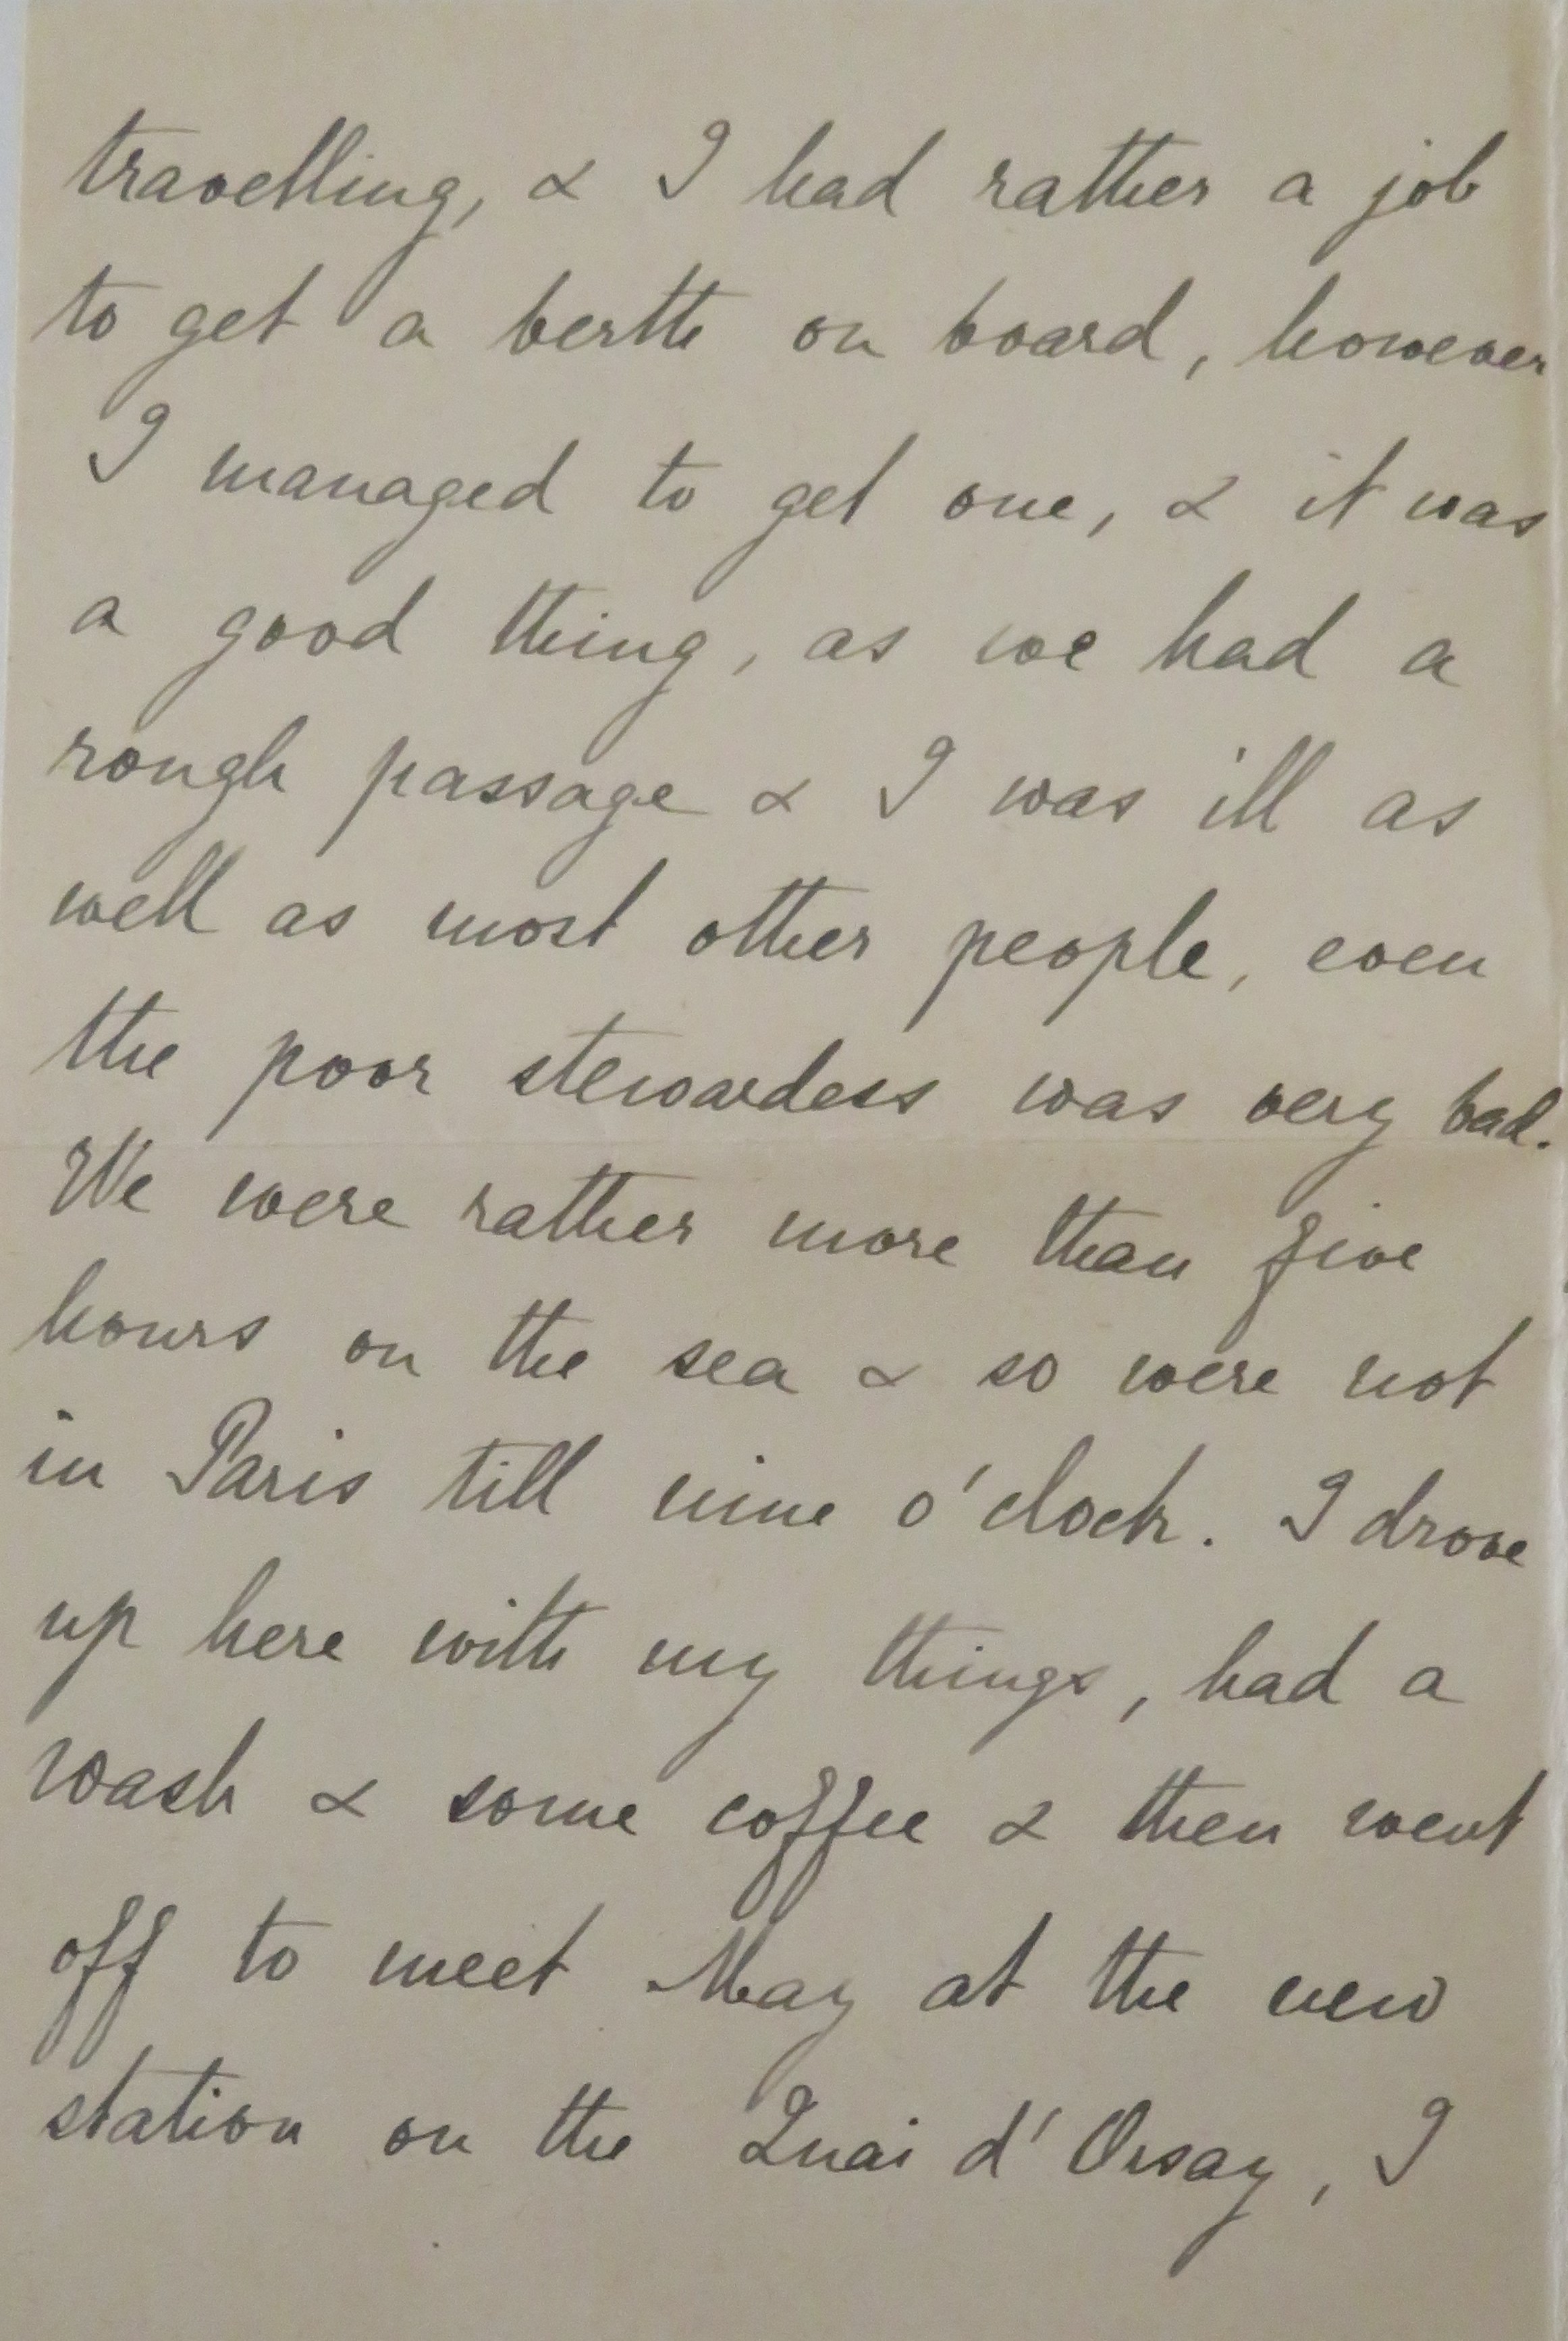 travelling, & I had rather a job
to get a berth on board, however
I managed to get one, & it was
a good thing, as we had a
rough passage & I was ill as
well as most other people, even
the poor stewardess was very bad.
We were rather more than five
hours on the sea & so were not
in Paris till nine o'clock. I drove
up here with my things, had a
wash & some coffee & then went
off to meet May at the new
station on the Quai d'Orsay, I